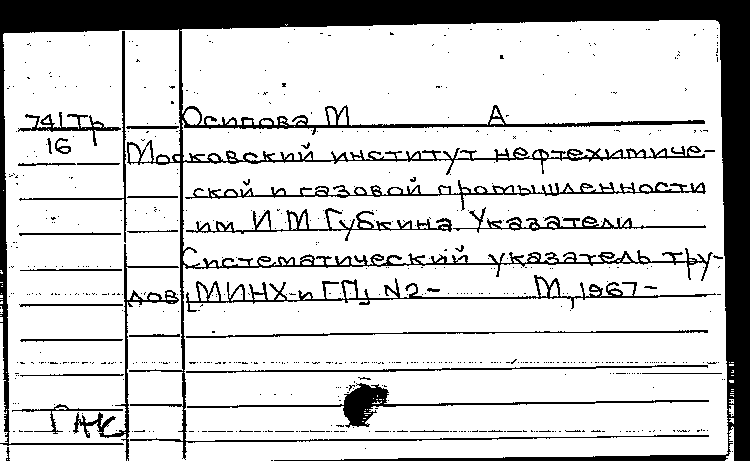 Осипова, М А
741Тр
16
Московский институт нефтехимиче-
ской и газовой промышленности
им. И М Губкина. Указатели.
Систематический указатель тру-
дов [МИНХ и ГП] N2- М, 1967-
ГАК